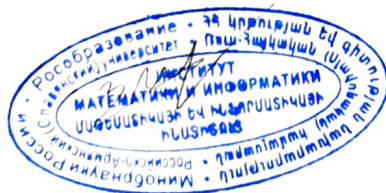 Минобрнауки России • Рособразование • ՀՀ կրթության և գիտության նախարարություն •
Российско-Армянский (Славянский) университет • Ռուս-Հայկական (Սլավոնական) համալսարան •
ИНСТИТУТ
МАТЕМАТИКИ И ИНФОРМАТИКИ
ՄԱԹԵՄԱՏԻԿԱՅԻ ԵՎ ԻՆՖՈՐՄԱՏԻԿԱՅԻ
ԻՆՍՏԻՏՈՒՏ